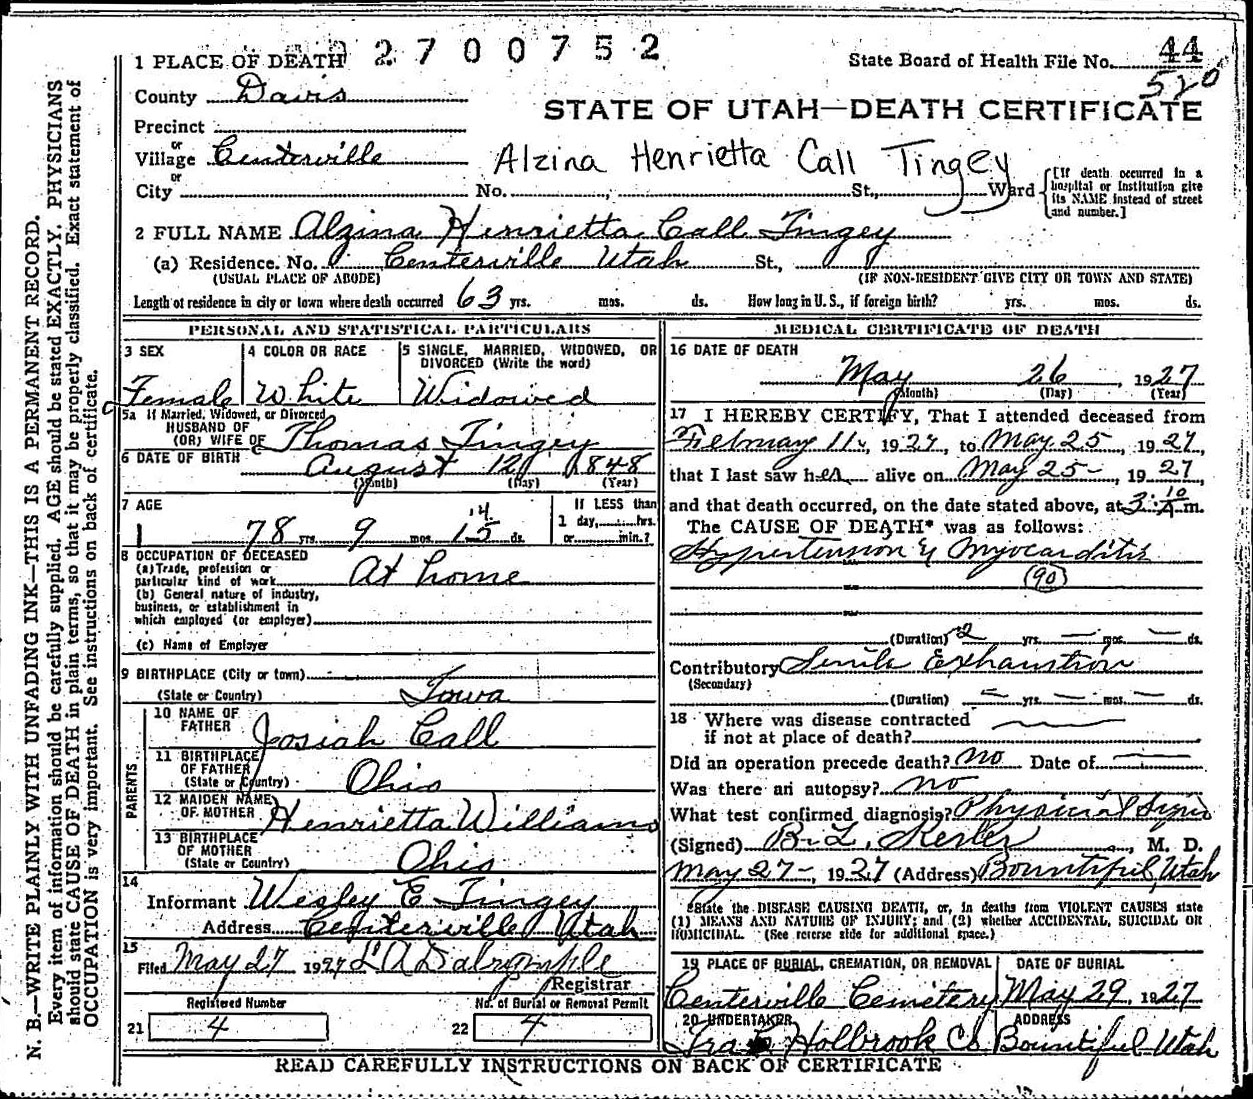 2700752
1 PLACE OF DEATH
State Board of Health File No. 44
520
County Davis
STATE OF UTAH—DEATH CERTIFICATE
Precinct
or
Village Centerville
Alzina Henrietta Call Tingey
or
City No. St., Ward
[If death occurred in a hospital or institution give its NAME instead of street and number.]
2 FULL NAME Alzina Henrietta Call Tingey
(a) Residence. No. Centerville Utah St.,
(USUAL PLACE OF ABODE) (IF NON-RESIDENT GIVE CITY OR TOWN AND STATE)
Length of residence in city or town where death occurred 63 yrs. mos. ds. How long in U. S., if foreign birth? yrs. mos. ds.
PERSONAL AND STATISTICAL PARTICULARS
3 SEX
Female
4 COLOR OR RACE
White
5 SINGLE, MARRIED, WIDOWED, OR
DIVORCED (Write the word)
Widowed
5a If Married, Widowed, or Divorced
HUSBAND OF
(OR) WIFE OF Thomas Tingey
6 DATE OF BIRTH August 12 1848
(Month) (Day) (Year)
7 AGE
78 yrs. 9 mos. 15 ds.
14
If LESS than
1 day, hrs.
or min.?
8 OCCUPATION OF DECEASED
(a) Trade, profession or
particular kind of work At home
(b) General nature of industry,
business, or establishment in
which employed (or employer)
(c) Name of Employer
9 BIRTHPLACE (City or town)
(State or Country) Iowa
PARENTS
10 NAME OF
FATHER Josiah Call
11 BIRTHPLACE
OF FATHER
(State or Country) Ohio
12 MAIDEN NAME
OF MOTHER Henrietta Williams
13 BIRTHPLACE
OF MOTHER
(State or Country) Ohio
14
Informant Wesley E Tingey
Address Centerville Utah
15
Filed May 27 1927 L A Dalrymple
Registrar
Registered Number No. of Burial or Removal Permit
21 4 22 4
MEDICAL CERTIFICATE OF DEATH
16 DATE OF DEATH
May 26, 1927
(Month) (Day) (Year)
17 I HEREBY CERTIFY, That I attended deceased from
February 11, 1927, to May 25, 1927,
that I last saw her alive on May 25-, 1927,
and that death occurred, on the date stated above, at 3:10 A m.
The CAUSE OF DEATH* was as follows:
Hypertension & Myocarditis
(90)
(Duration) 2 yrs. — mos. — ds.
Contributory Senile Exhaustion
(Secondary)
(Duration) — yrs. — mos. — ds.
18 Where was disease contracted
if not at place of death?
Did an operation precede death? No Date of —
Was there an autopsy? no
What test confirmed diagnosis? Physical Signs
(Signed) B. L. Kesler, M. D.
May 27-, 1927 (Address) Bountiful, Utah
*State the DISEASE CAUSING DEATH, or, in deaths from VIOLENT CAUSES state
(1) MEANS AND NATURE OF INJURY; and (2) whether ACCIDENTAL, SUICIDAL OR
HOMICIDAL. (See reverse side for additional space.)
19 PLACE OF BURIAL, CREMATION, OR REMOVAL
Centerville Cemetery
DATE OF BURIAL
May 29, 1927
20 UNDERTAKER
Ira Holbrook Co
ADDRESS
Bountiful Utah
READ CAREFULLY INSTRUCTIONS ON BACK OF CERTIFICATE
N. B.—WRITE PLAINLY WITH UNFADING INK—THIS IS A PERMANENT RECORD.
Every item of information should be carefully supplied. AGE should be stated EXACTLY. PHYSICIANS
should state CAUSE OF DEATH in plain terms, so that it may be properly classified. Exact statement of
OCCUPATION is very important. See instructions on back of certificate.